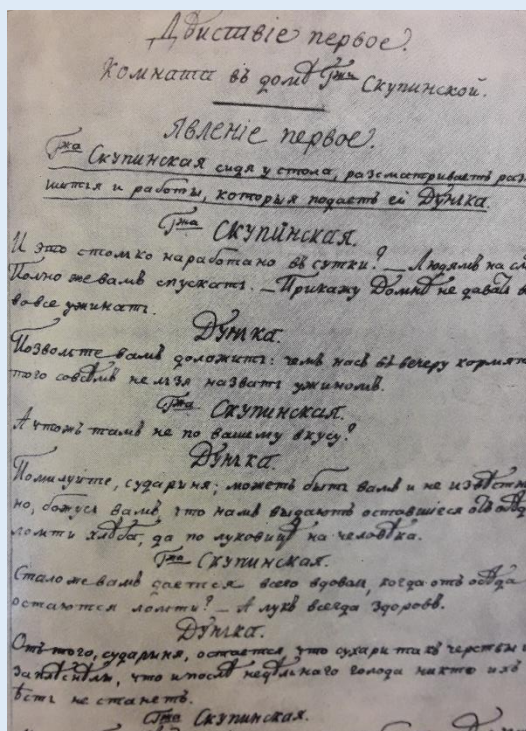 Дѣйствіе первое.
Комната въ домѣ Гжи Скупинской.
Явленіе первое.
Гжа Скупинская сидя у стола, разсматриваетъ раз
шитья и работы, которыя подаетъ ей Дунька.
Гжа Скупинская.
И это столько наработано въ сутки? — Людямъ на с
Полно же вамъ спускать. — Прикажу Домнѣ не давай в
вовсе ужинать.
Дунька.
Позвольте вамъ доложить: чемъ насъ въ вечеру кормятъ
того совсѣмъ не льзя назвать ужиномъ.
Гжа Скупинская.
А чтожъ тамъ не по вашему вкусу?
Дунька.
Помилуйте, сударыня; можетъ быть вамъ и не извѣстн
но, божусь вамъ, что намъ выдаютъ оставшіеся отъ обѣд
ломти хлѣба, да по луковицѣ на человѣка.
Гжа Скупинская.
Стало же вамъ дается всего вдовал, когда отъ обѣда
остаются ломти? — А лукъ всегда здоровъ.
Дунька.
Отъ того, сударыня, остается, что сухари такъ черствы и
заплѣснѣли, что и послѣ недѣльнаго голода никто ихъ
ѣсть не станетъ.
Гжа Скупинская.